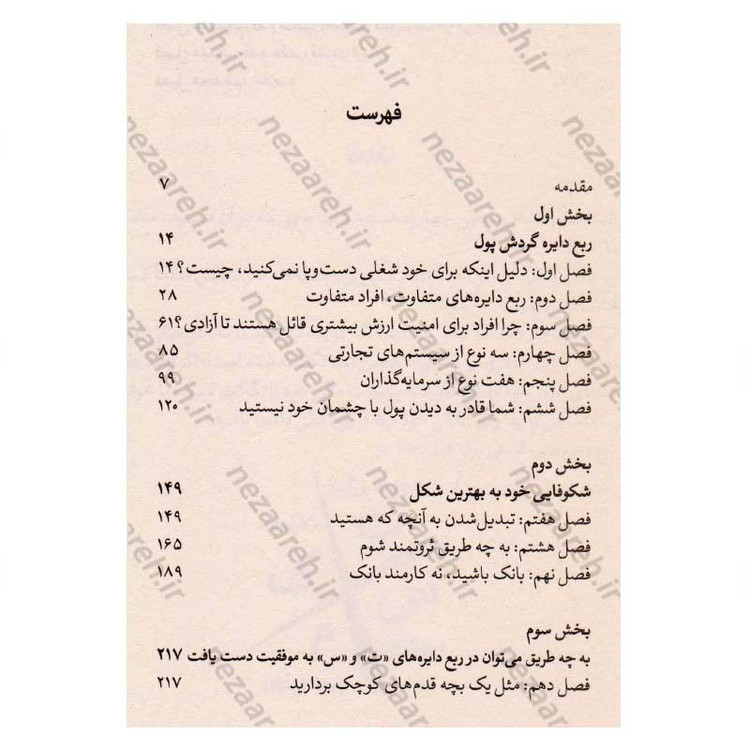 فهرست
مقدمه ۷
بخش اول
ربع دایره گردش پول ۱۴
فصل اول: دلیل اینکه برای خود شغلی دست‌وپا نمی‌کنید، چیست؟ ۱۴
فصل دوم: ربع دایره‌های متفاوت، افراد متفاوت ۲۸
فصل سوم: چرا افراد برای امنیت ارزش بیشتری قائل هستند تا آزادی؟ ۶۱
فصل چهارم: سه نوع از سیستم‌های تجارتی ۸۵
فصل پنجم: هفت نوع از سرمایه‌گذاران ۹۹
فصل ششم: شما قادر به دیدن پول با چشمان خود نیستید ۱۲۰
بخش دوم
شکوفایی خود به بهترین شکل ۱۴۹
فصل هفتم: تبدیل‌شدن به آنچه که هستید ۱۴۹
فصل هشتم: به چه طریق ثروتمند شوم ۱۶۵
فصل نهم: بانک باشید، نه کارمند بانک ۱۸۹
بخش سوم
به چه طریق می‌توان در ربع دایره‌های «ت» و «س» به موفقیت دست یافت ۲۱۷
فصل دهم: مثل یک بچه قدم‌های کوچک بردارید ۲۱۷
nezaareh.ir